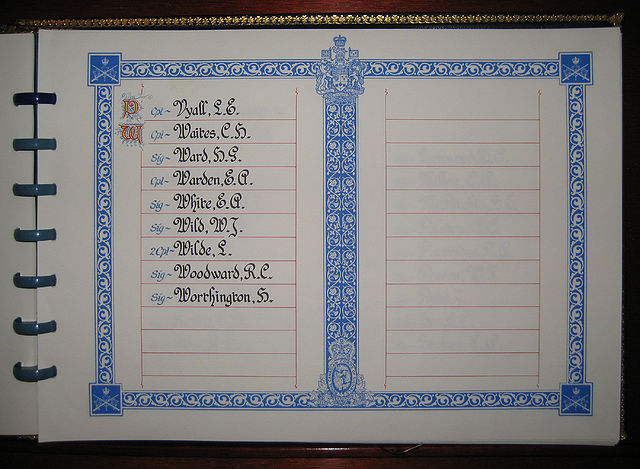 V Cpl~ Vyall, L.E.
W Cpl~ Waites, C.H.
Sig~ Ward, H.G.
Cpl~ Warden, E.A.
Sig~ White, E.A.
Sig~ Wild, W.J.
2Cpl~ Wilde, L.
Sig~ Woodward, R.C.
Sig~ Worthington, H.